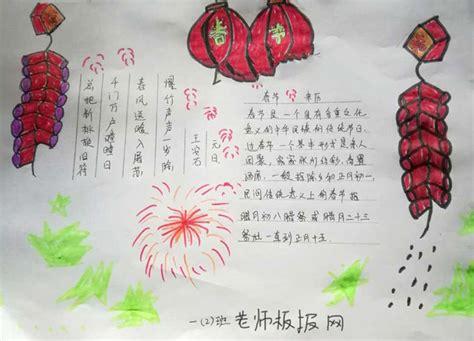 春节
元日
王安石
爆竹声声一岁除
春风送暖入屠苏
千门万户瞳瞳日
总把新桃换旧符
春节 来历
春节是一个具有多重文化
意义的中华民族的传统节日。
过春节一个基本形式是亲人
团聚，家家张灯结彩，备置
酒席，一般指除夕和正月初一。
民间传统意义上的春节指
腊月初八腊祭或腊月二十三
祭灶一直到正月十五。
一(2)班 老师板报网